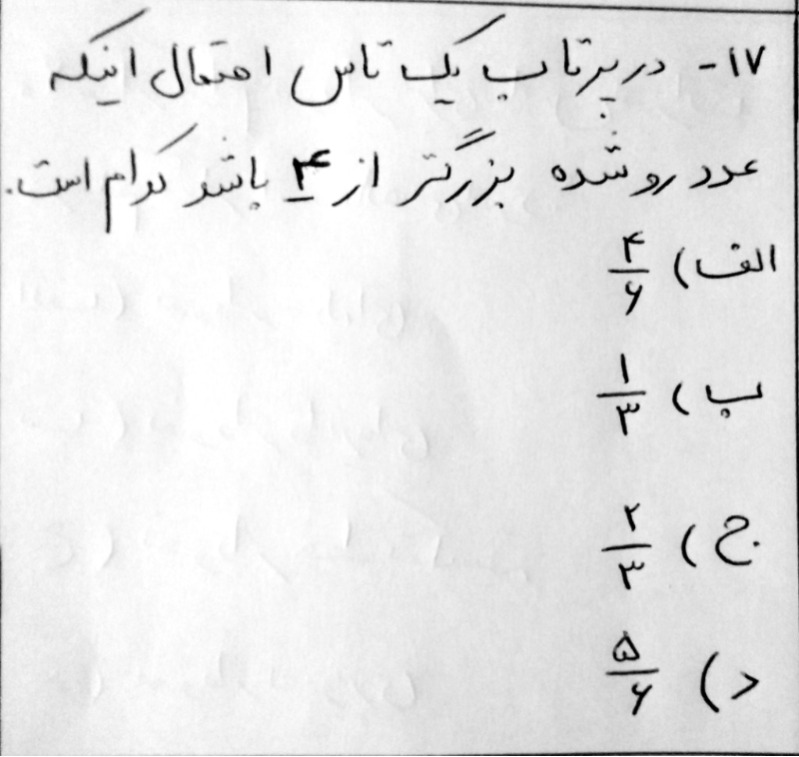 ۱۷- در پرتاب یک تاس احتمال اینکه
عدد رو شده بزرگتر از ۴ باشد کدام است.
الف) ۴/۶
ب) ۱/۳
ج) ۲/۳
د) ۵/۶